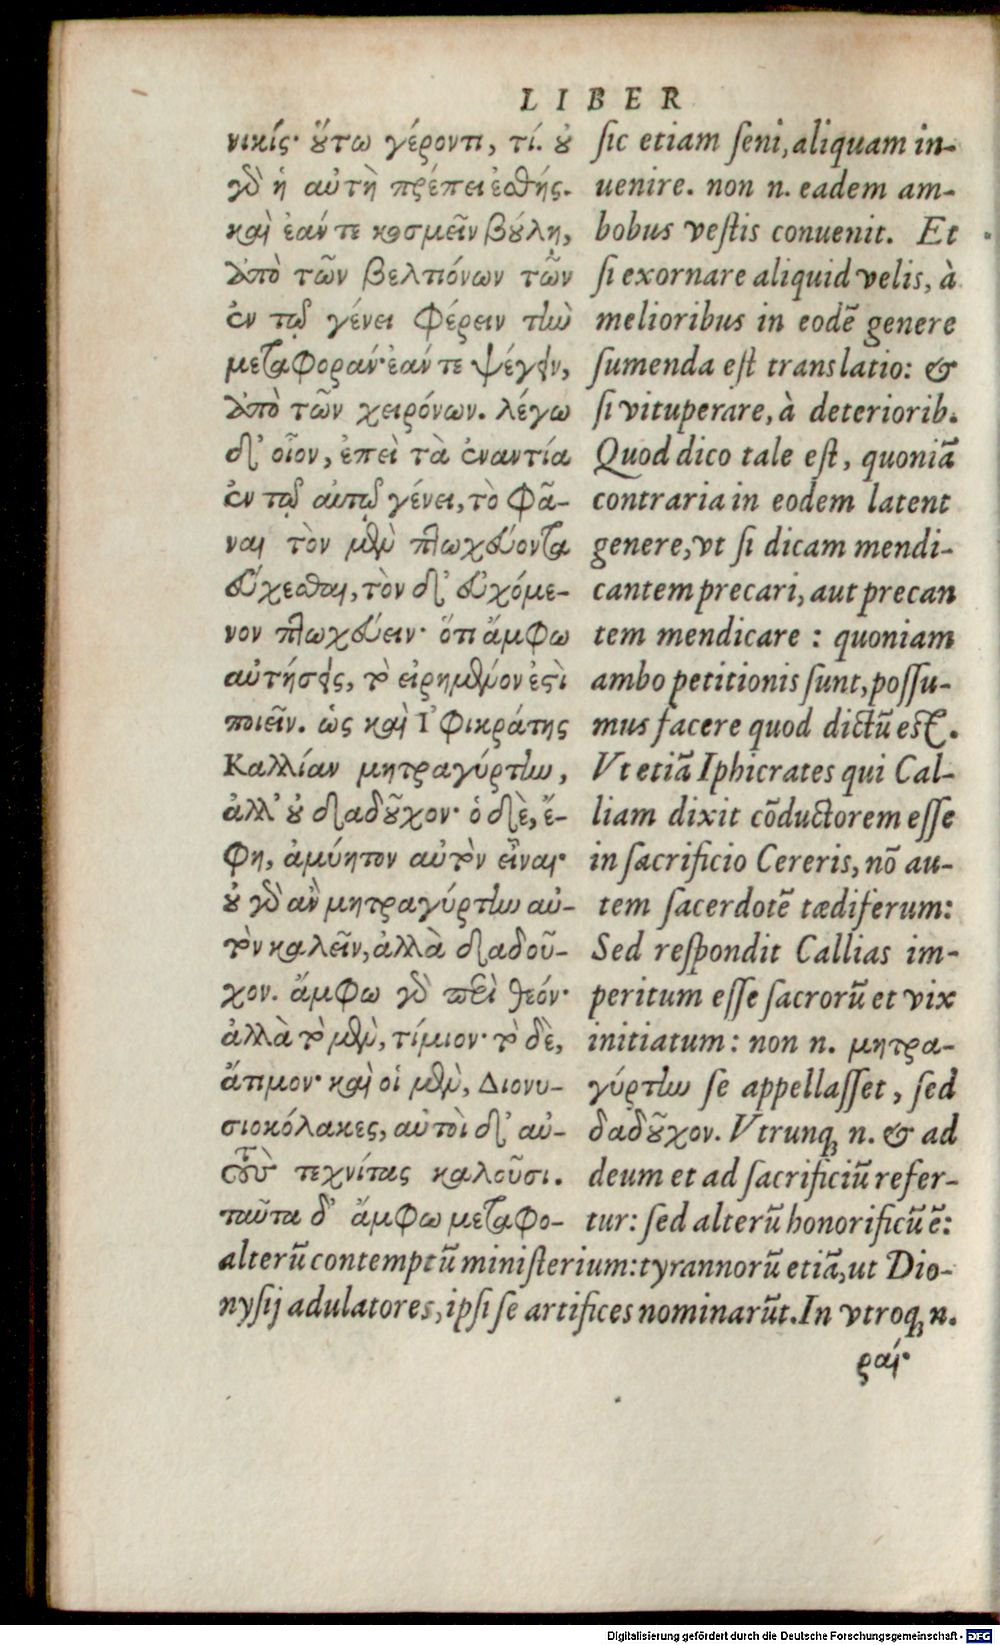 LIBER
νικίς· ȣ̔́τω γέροντι, τί. ȣ̓
γὸ ἡ αὐτὴ πρέπει ἐσθής.
καὶ ἐάν τε κοσμεῖν βȣ́λῃ,
ἀπὸ τῶν βελτιόνων τῶν
ἐν τῷ γένει φέρειν τὴν
μεταφοράν· ἐάν τε ψέγειν,
ἀπὸ τῶν χειρόνων. λέγω
δ' οἷον, ἐπεὶ τὰ ἐναντία
ἐν τῷ αὐτῷ γένει, τὸ φά-
ναι τὸν μὲν πτωχεύοντα
εὔχεσθαι, τὸν δ' εὐχόμε-
νον πτωχεύειν· ὅτι ἄμφω
αὐτήσεις, τὸ εἰρημένον ἐςὶ
ποιεῖν. ὡς καὶ Ἰφικράτης
Καλλίαν μητραγύρτην,
ἀλλ' ȣ̓ δᾳδȣ͂χον· ὁ δὲ, ἔ-
φη, ἀμύητον αὐτὸν εἶναι·
ȣ̓ γὸ ἂν μητραγύρτην αὐ-
τὸν καλεῖν, ἀλλὰ δᾳδοῦ-
χον. ἄμφω γὸ περὶ θεόν·
ἀλλὰ τὸ μὲν, τίμιον· τὸ δὲ,
ἄτιμον· καὶ οἱ μὲν, Διονυ-
σιοκόλακες, αὐτοὶ δ' αὐ-
τοὺς τεχνίτας καλοῦσι.
ταῦτα δ' ἄμφω μεταφο-
sic etiam seni, aliquam in-
uenire. non n. eadem am-
bobus vestis conuenit. Et
si exornare aliquid velis, à
melioribus in eodē genere
sumenda est translatio: &
si vituperare, à deteriorib.
Quod dico tale est, quoniā
contraria in eodem latent
genere, vt si dicam mendi-
cantem precari, aut precan
tem mendicare : quoniam
ambo petitionis sunt, possu-
mus facere quod dictū est.
Vt etiā Iphicrates qui Cal-
liam dixit cōductorem esse
in sacrificio Cereris, nō au-
tem sacerdotē tædiferum:
Sed respondit Callias im-
peritum esse sacrorū et vix
initiatum: non n. μητρα-
γύρτην se appellasset, sed
δαδȣ͂χον. Vtrunq; n. & ad
deum et ad sacrificiū refer-
tur: sed alterū honorificū ē:
alterū contemptū ministerium: tyrannorū etiā, ut Dio-
nysij adulatores, ipsi se artifices nominarūt. In vtroq; n.
ραί·
Digitalisierung gefördert durch die Deutsche Forschungsgemeinschaft - DFG